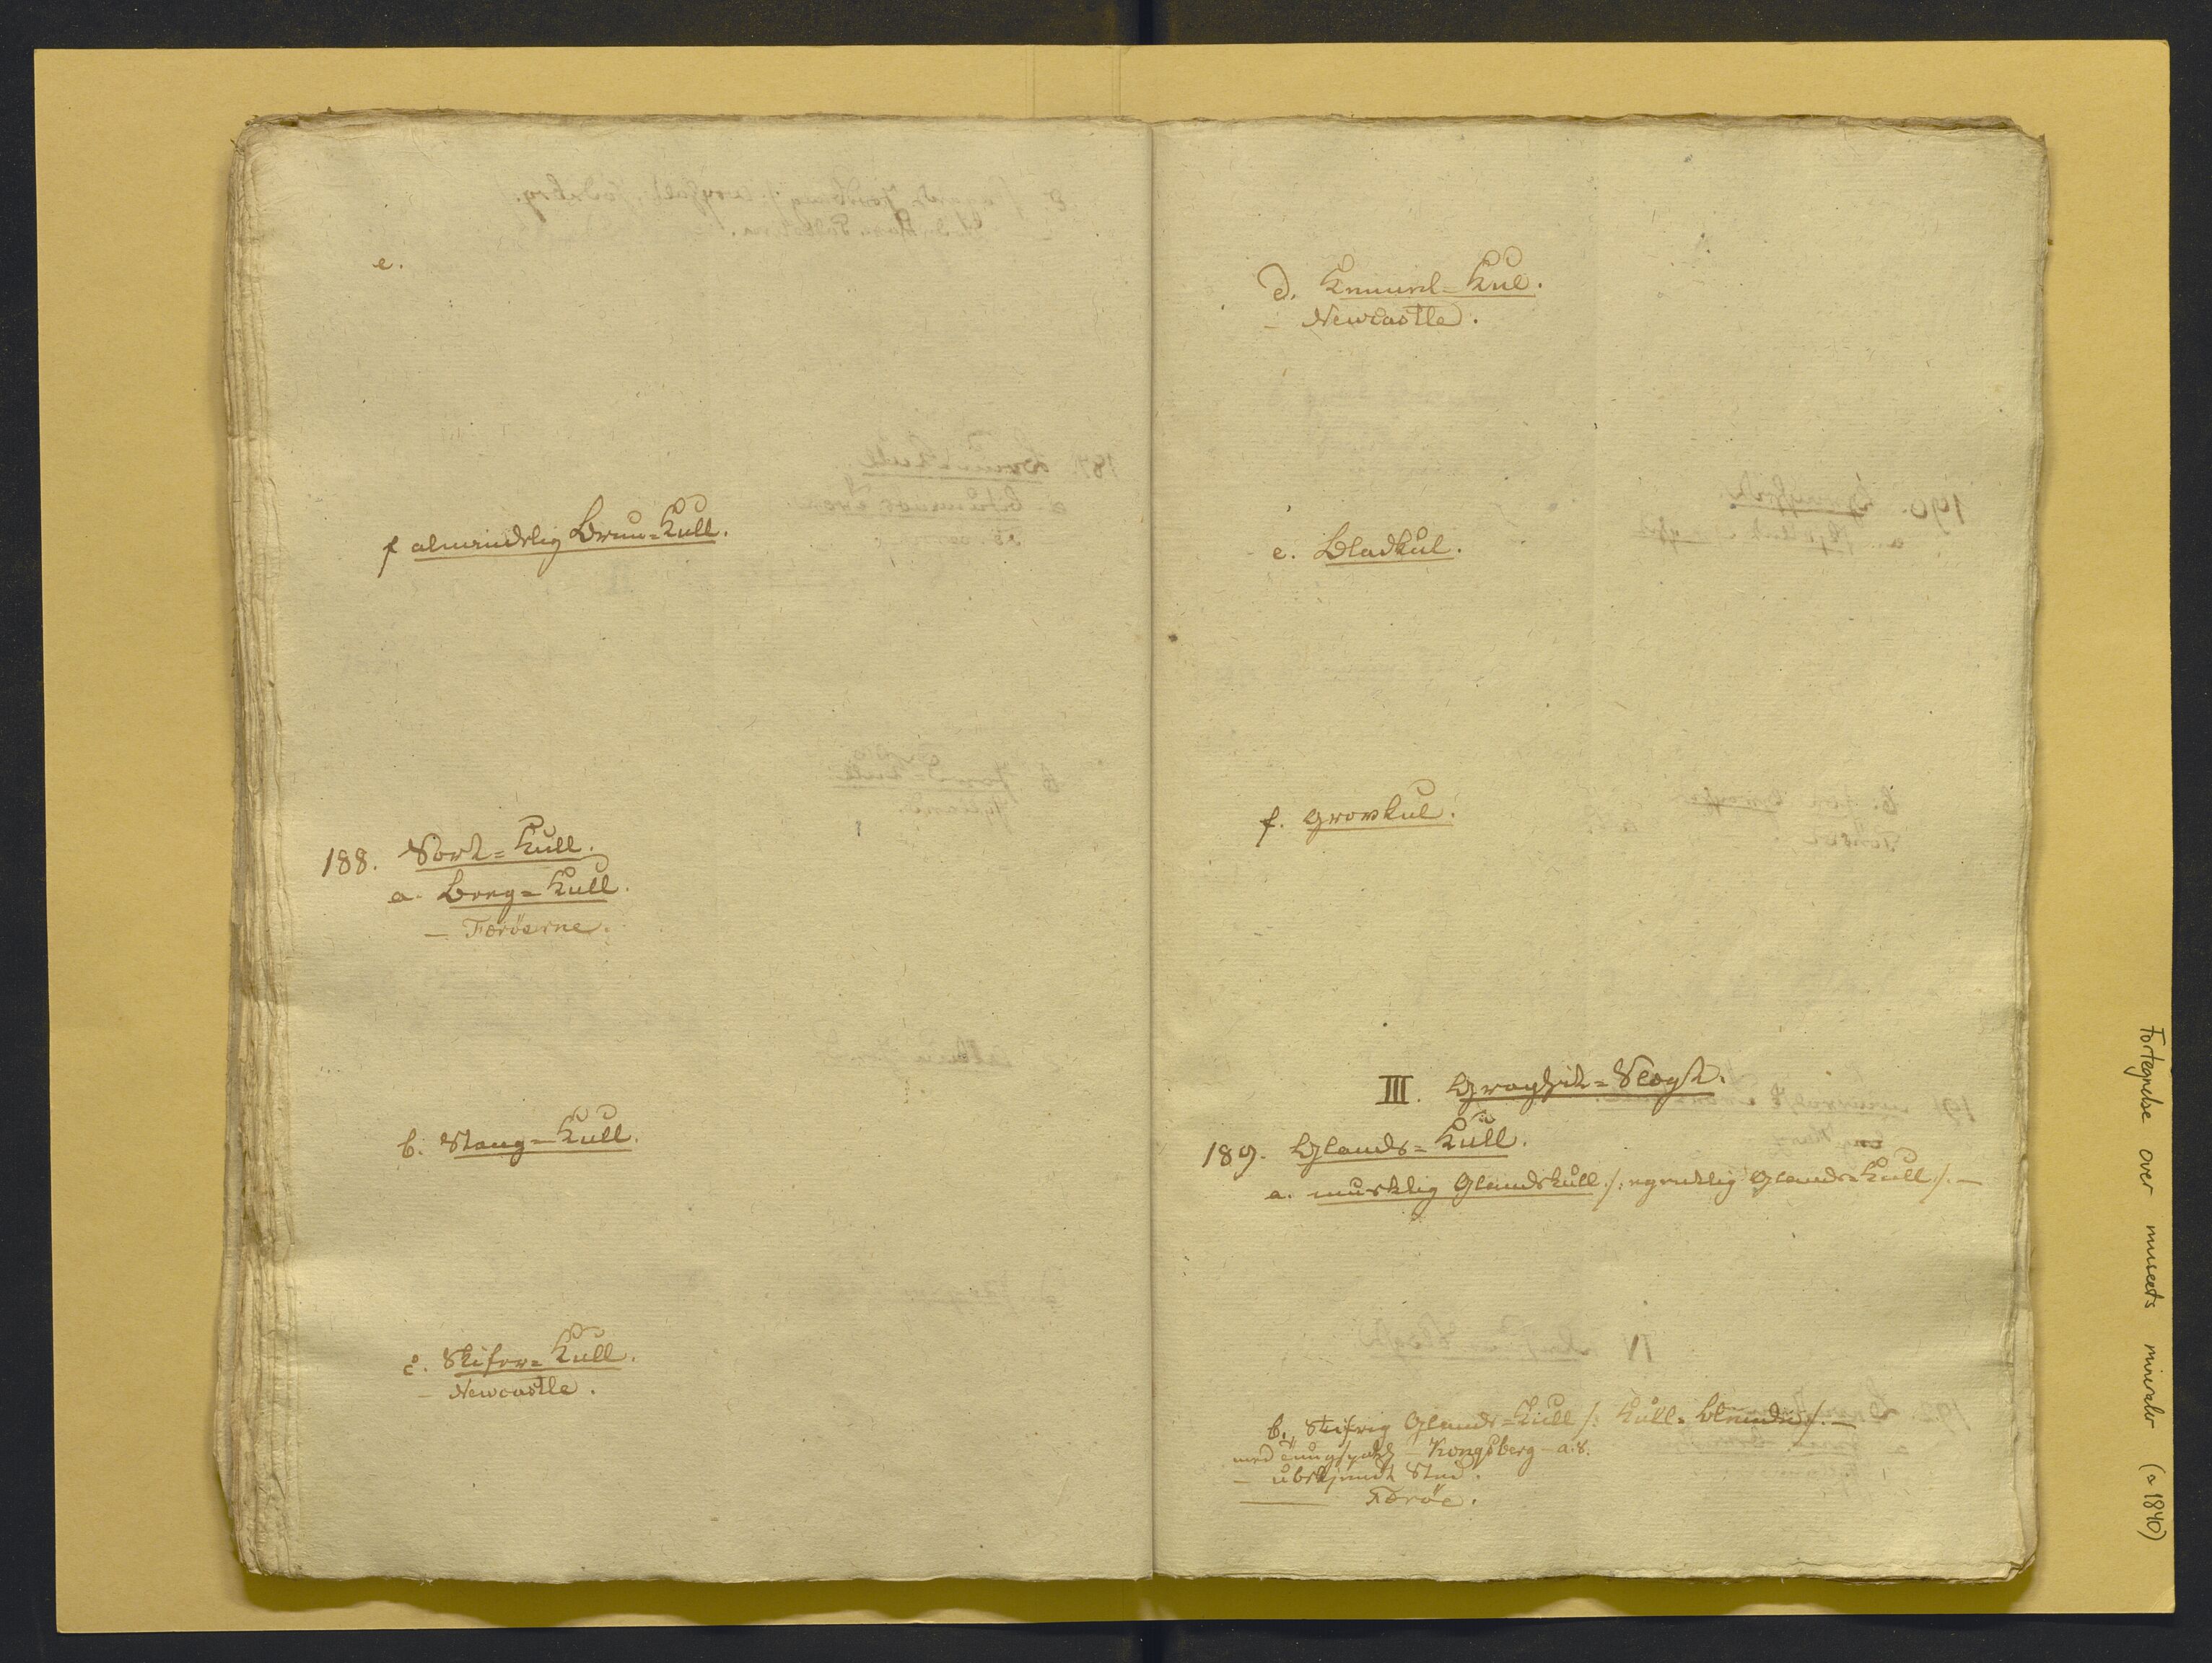 e.
f almindelig Brun=Kull.
188. Sort=Kull.
a. Beeg=Kull.
— Færöerne.
b. Stang=Kull.
c. Skifer=Kull.
— Newcastle.
d. Kennel=Kul.
— Newcastle.
e. Bladkul.
f. Grovkul.
III. Graphit=Slægt.
189. Glands=Kull.
a. muslig Glandskull /: egentlig Glands=Kull /. —
b. Skifrig Glands=Kull /: Kull=Blende /. —
med Kongsberg a. 8.
— ubekjendt Sted.
Færöe.
Fortegnelse over museets mineraler (ca 1840)